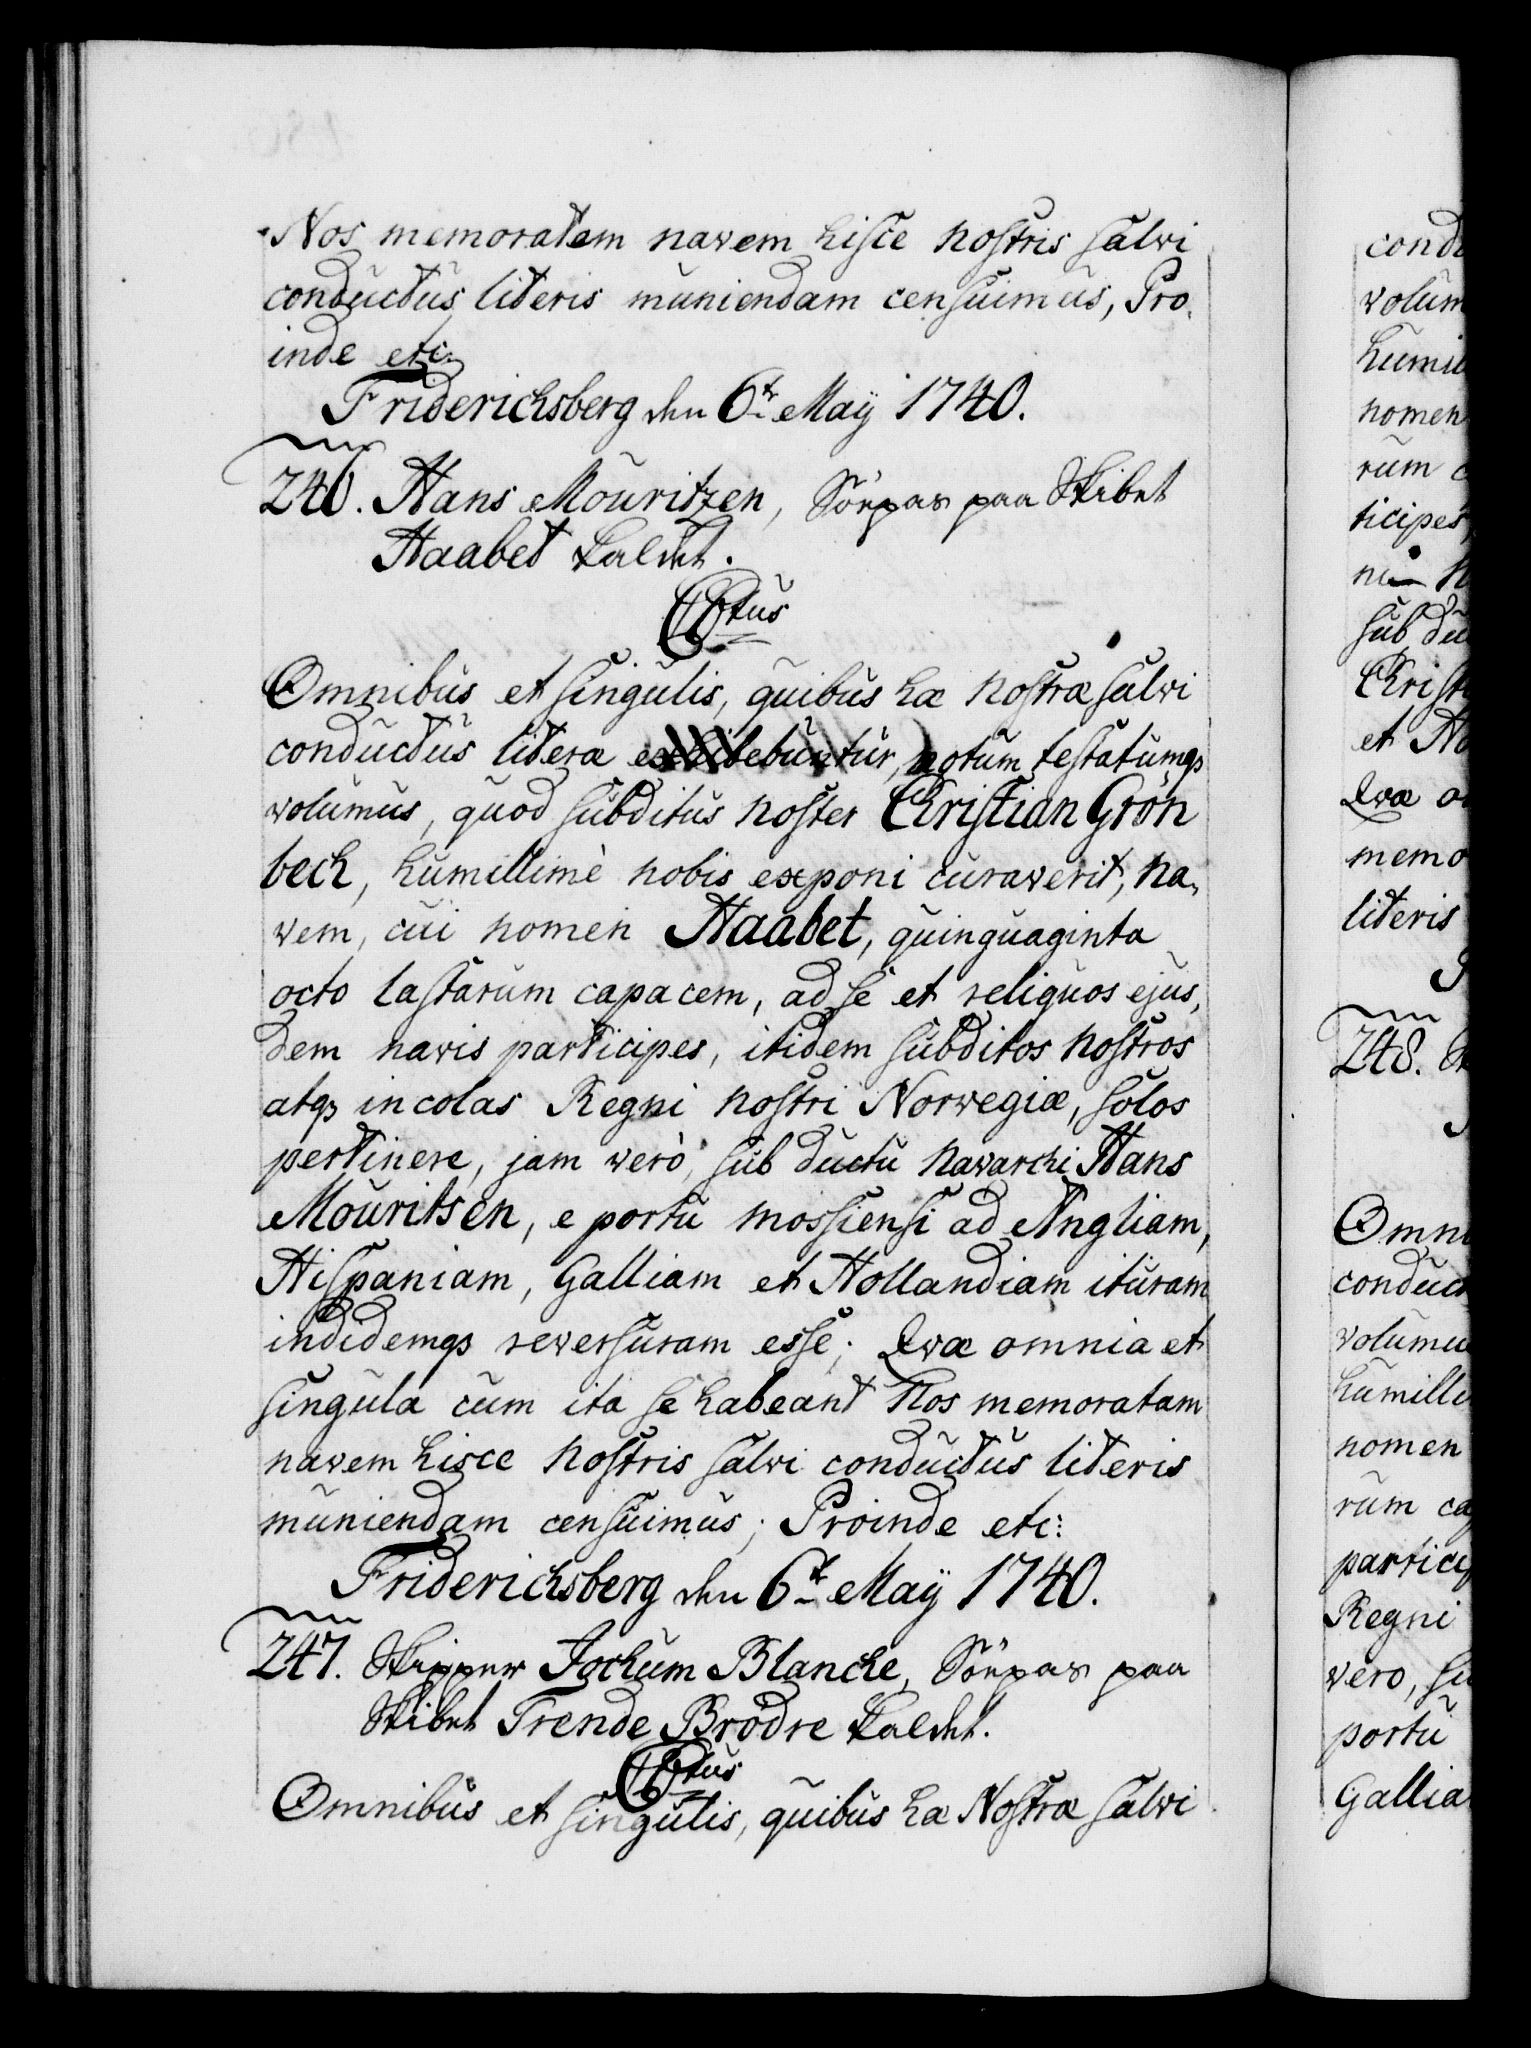 Nos memoratem navem hisce nostris salvi
conductus literis muniendam censuimus, Pro,
inde etc:
Friderichsberg den 6te Maÿ 1740.
246. Hans Mouritzen, Söepas paa Skibet
Haabet kaldet.
C6tus
Omnibus et singulis, quibus hæ nostræ salvi
conductus literæ exhibebuntur, notum testatumqs
volumus, quod subditus noster Christian Grön
bech, humillimè nobis exponi curaverit, na,
vem, cui nomen Haabet, quinquaginta
octo lastarum capacem, ad se et reliquos ejus,
dem navis participes, itidem subditos nostros
atqs incolas Regni nostri Norwegiæ, solos
pertinere, jam verò, sub ductu navarchi Hans
Mouritsen, e portu mossiensi ad Angliam,
Hispaniam, Galliam et Hollandiam ituram
indidemqs reversuram esse; Qvæ omnia et
singula cum ita se habeant Nos memoratam
navem hisce nostris salvi conductus literis
muniendam censuimus; Proinde etc:
Friderichsberg den 6te Maÿ 1740.
247. Skipper Jochum Blanche, Söepas paa
Skibet Trende Brödre kaldet.
C6tus
Omnibus et singulis, quibus hæ Nostræ salvi
condu
volum
humil
nomen
rum c
ticipes,
sub du
Christ
et No
Qvæ o
memo
literis
248. Sk
Omni
conduct
volumu
humilli
nomen
rum ca
particip
Regni
vero, su
portu
Gallia